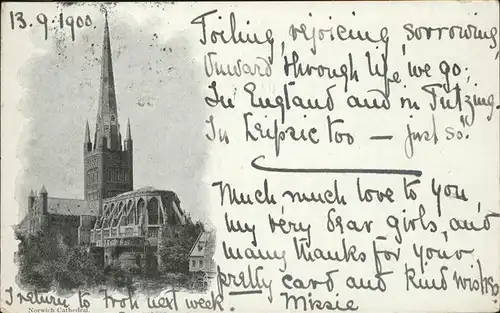 13. 9. 1900.
Toiling, rejoicing, sorrowing,
Onward through life we go;
In England and in Tutzing.
In Leipzic too — just so."
Much much love to you,
my very dear girls, and
many thanks for your
pretty card and kind wishes.
I return to Froh next week. Missie
Norwich Cathedral.